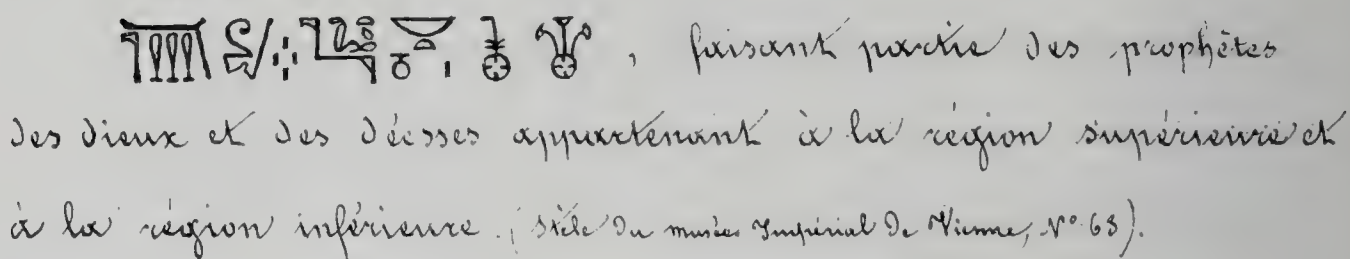 , faisant partie des prophêtes
des dieux et des déesses appartenant à la région supérieure et
à la région inférieure. (Stèle du musée Impérial de Vienne, N° 63).